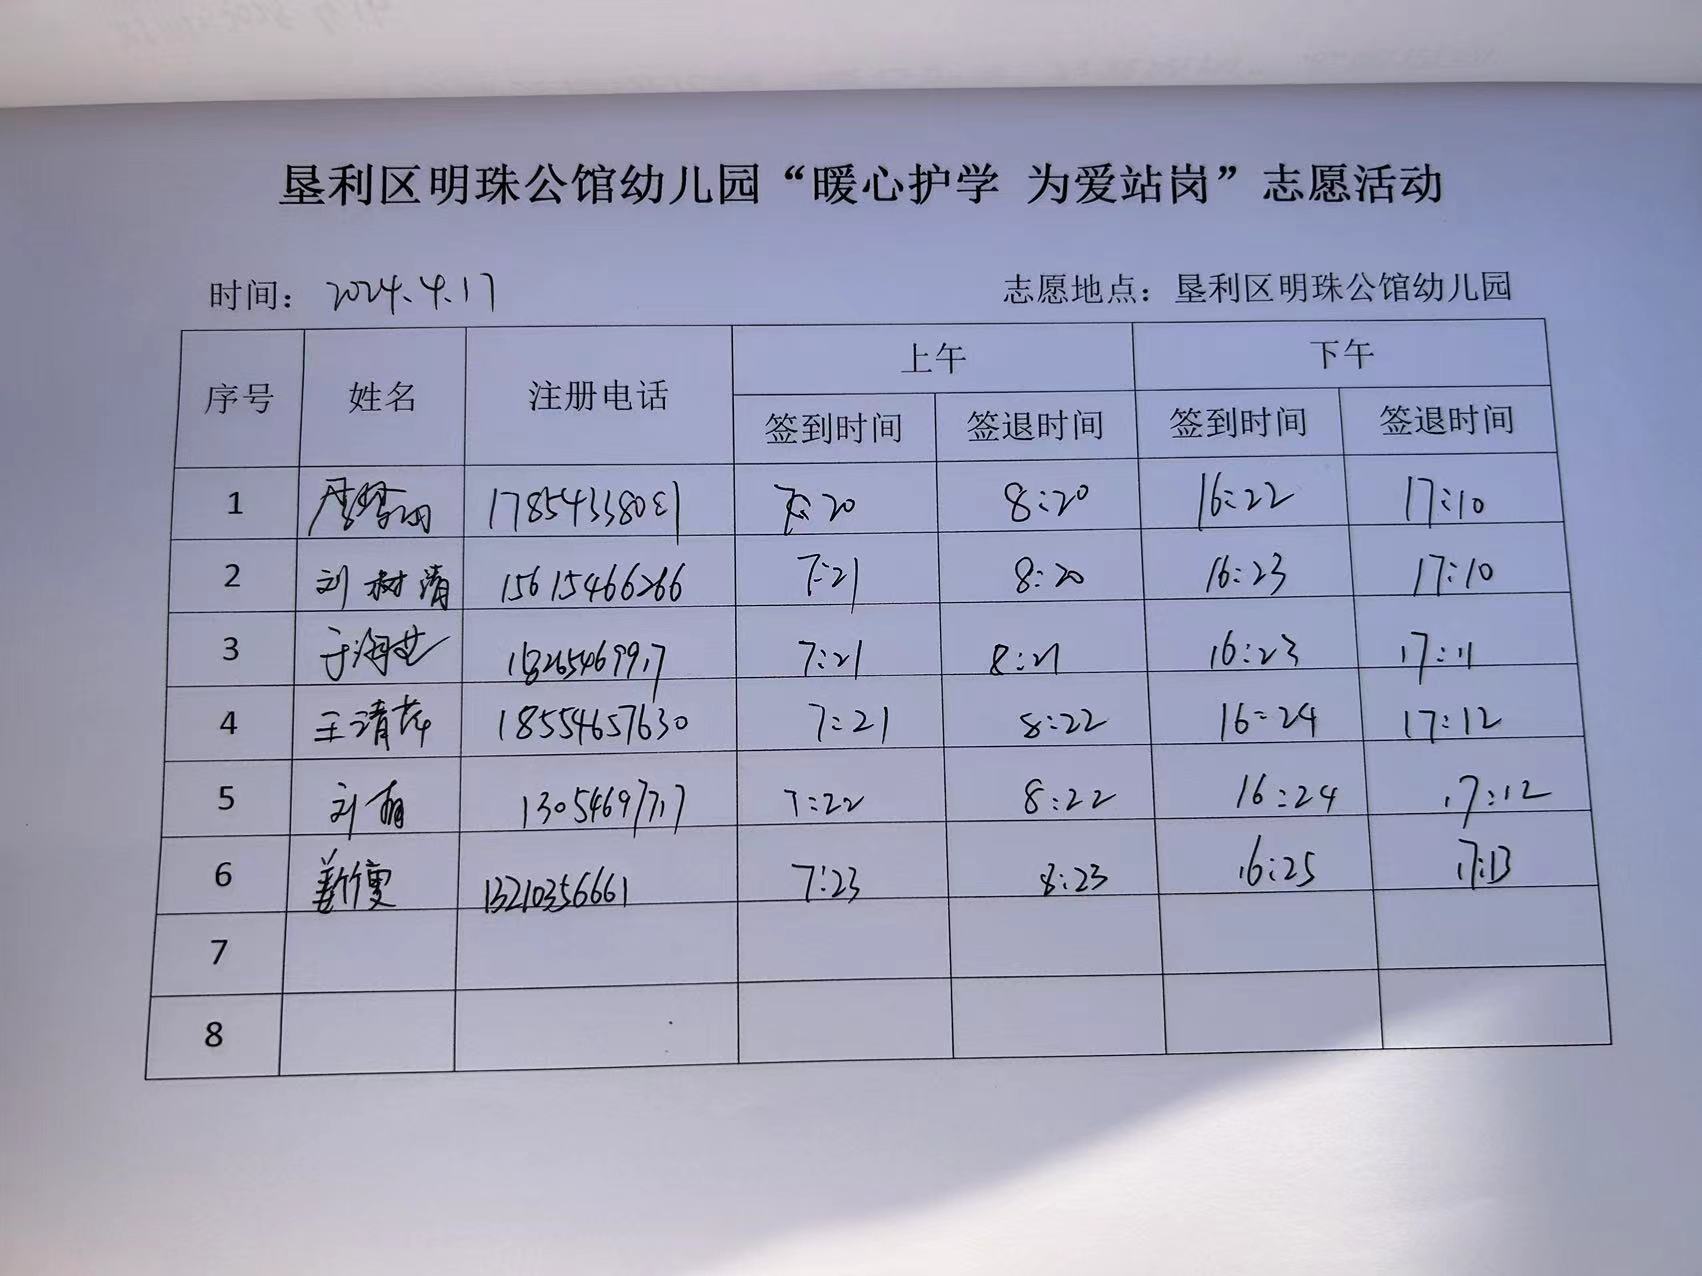 垦利区明珠公馆幼儿园“暖心护学 为爱站岗”志愿活动
时间：2024.4.17 志愿地点：垦利区明珠公馆幼儿园
序号 姓名 注册电话 上午 下午
签到时间 签退时间 签到时间 签退时间
1 17854338031 7:20 8:20 16:22 17:10
2 刘树清 15615466266 7:21 8:20 16:23 17:10
3 于海芝 7:21 8:21 16:23 17:11
4 王清萍 18554657630 7:21 8:22 16:24 17:12
5 刘 13054697717 7:22 8:22 16:24 17:12
6 13210356661 7:23 8:23 16:25 17:13
7
8